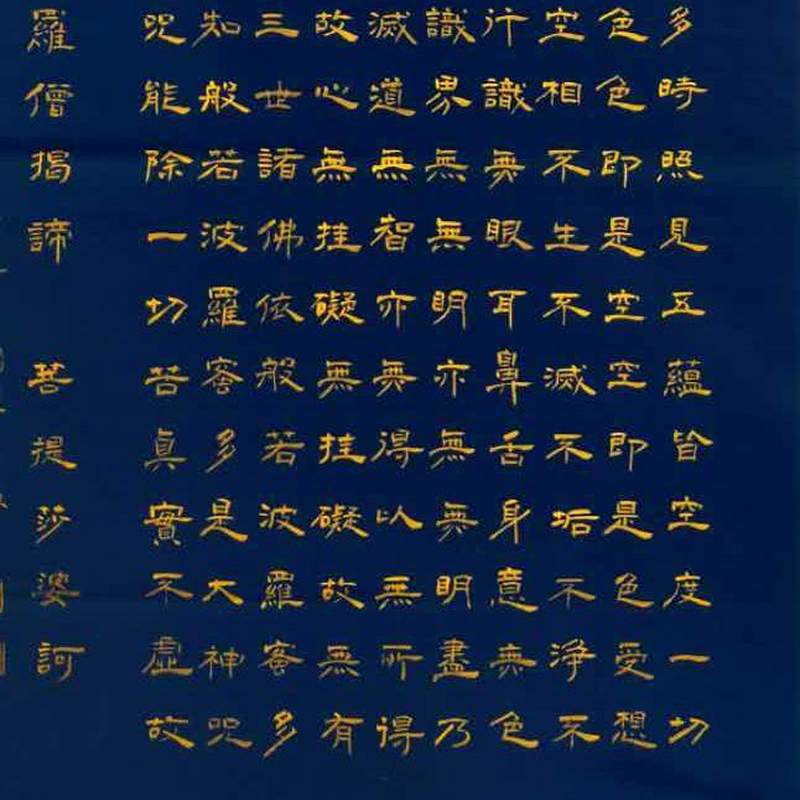 多時照見五蘊皆空度一切
色色即是空空即是色受想
空相不生不滅不垢不淨不
行識無眼耳鼻舌身意無色
識界無無明亦無無明盡乃
滅道無智亦無得以無所得
故心無挂礙無挂礙故無有
三世諸佛依般若波羅蜜多
知般若波羅蜜多是大神咒
咒能除一切苦真實不虛故
羅僧揭諦 菩提莎婆訶